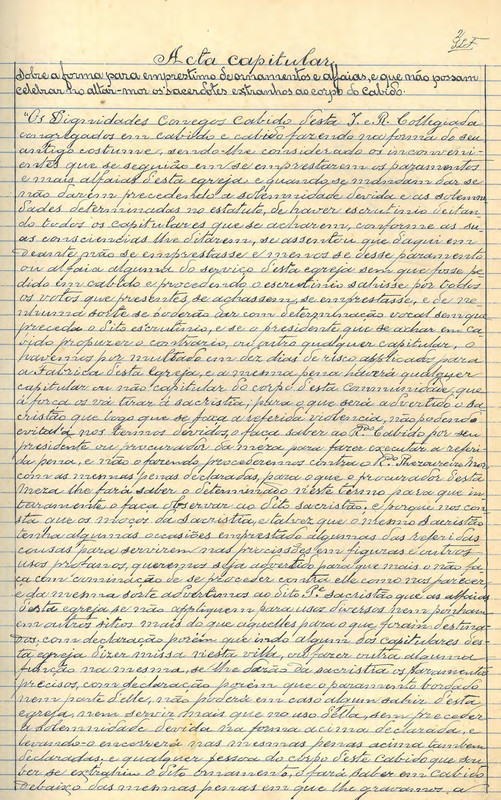 Acta capitular,
Sobre a forma para emprestimo de ornamentos e alfaias, e que não possam
celebrar no altar-mor os sacerdotes extranhos ao corpo do cabido.
"Os Dignidades Conegos Cabido desta I. e R. Collegiada
congregados em cabildo e cabido fazendo na forma do seu
antigo costume, sendo-lhe considerado os inconveni-
entes que se seguião em se emprestarem os paramentos
e mais alfaias desta egreja, e quando se mandam dar se
não darem precedendo a solemnidade devida e as solemni-
dades determinadas no estatuto, de haver escrutinio deitan-
do todos os capitulares que se acharem, conforme as su-
as consciencias lhe ditarem, se assentou que d'aqui em
deante não se emprestasse e menos se desse paramento
ou alfaia alguma do serviço desta egreja sem que fosse pe-
dido em cabido e procedendo o escrutinio sahisse por todos
os votos que presentes se achassem, se emprestasse, e de ne-
nhuma sorte se poderão dar com determinação vocal sem que
preceda o dito escrutinio, e se o presidente que se achar em ca-
bido propuzer o contrario, ou outro qualquer capitular, o
havemos por multado em dez dias de risco applicado para
a Fabrica desta Egreja, e a mesma pena haverá qualquer
capitular ou não capitular do corpo desta Communidade, que
á força os vá tirar á sacristia; para o que será advertido o sa-
cristão que logo que se faça a referida violencia, não podendo
evital-a nos termos devidos, o faça saber ao R.do Cabido por seu
presidente ou procurador da meza para fazer executar a referi-
da pena, e não o fazendo procederemos contra o R.do Thezoureiro Mor
com as mesmas penas declaradas, para o que o procurador desta
Meza lhe fará saber o determinado n'este termo para que in-
teiramente o faça observar ao dito sacristão, e porque nos con-
sta que os moços da sacristia, e talvez que o mesmo sacristão
tenha algumas occasiões emprestado algumas das referidas
cousas para servirem nas procissões em figuras e outros
usos profanos, queremos seja advertido para que mais o não fa-
ça com cominação de se proceder contra elle como nos parecer,
e da mesma sorte advertimos ao dito P.e sacristão que as alfaias
desta egreja se não appliquem para usos diversos nem ponham
em outros sitios mais do que aquelles para o que foram destina-
dos, com declaração porém que indo algum dos capitulares des-
ta egreja dizer missa n'esta villa, ou fazer outra alguma
função na mesma, se lhe darão da sacristia os paramentos
precisos, com declaração porém que o paramento bordado
nem parte d'elle, não poderá em caso algum sahir desta
egreja, nem servir mais que no uso d'ella, sem preceder
a solemnidade devida na forma acima declarada, e
levando-o encorrerá nas mesmas penas acima tambem
declaradas, e qualquer pessoa do corpo deste Cabido que sou-
ber se extrahiu o dito ornamento, o fará saber em Cabido
debaixo das mesmas penas em que lhe gravamos, a